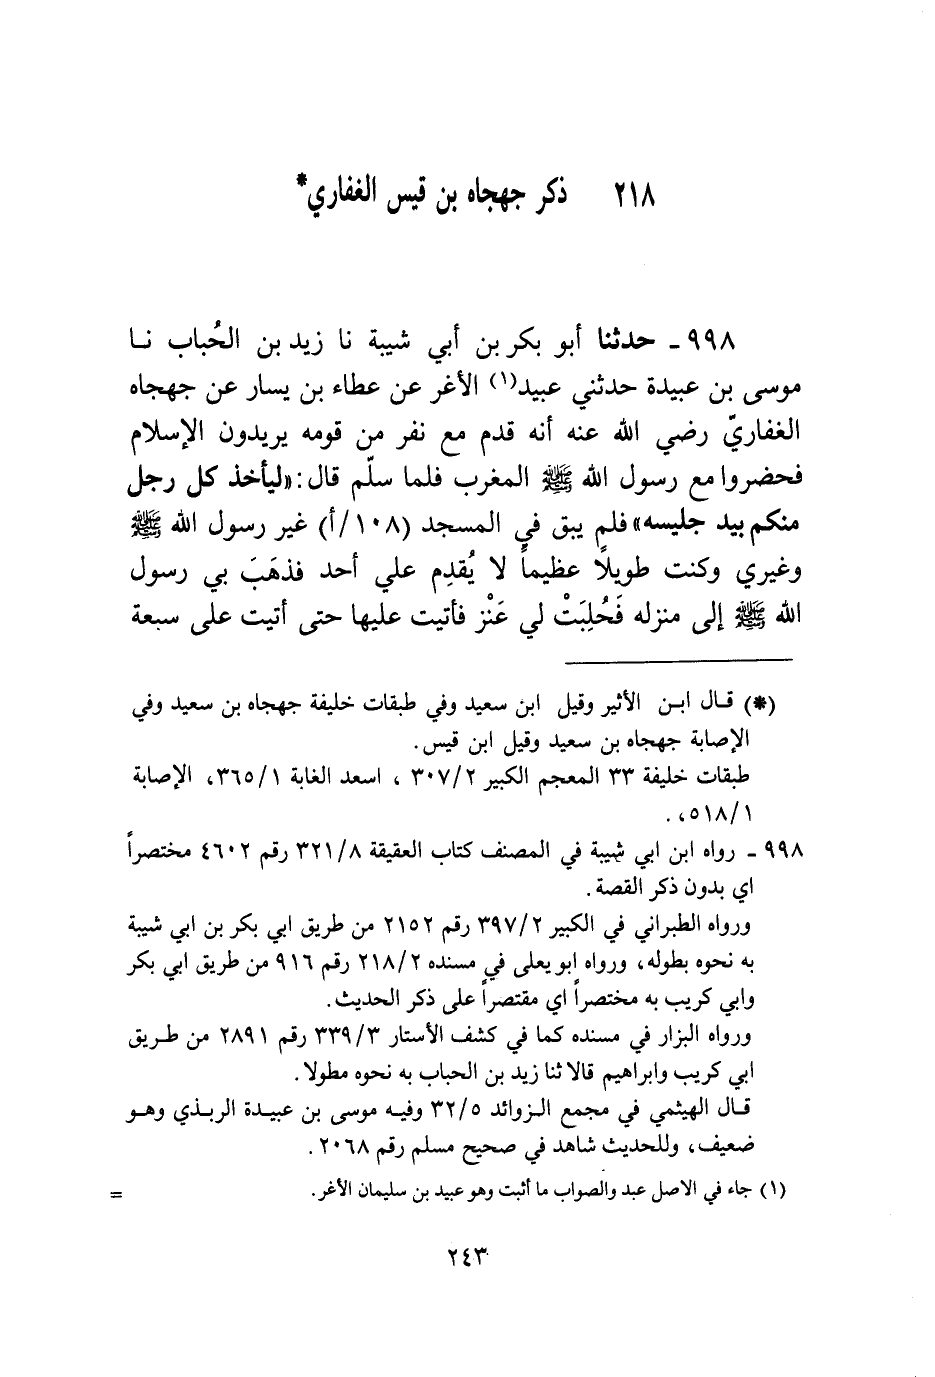 ٢١٨ ذكر جهجاه بن قيس الغفاري*
٩٩٨ - حدثنا أبو بكر بن أبي شيبة نا زيد بن الحُباب نا
موسى بن عبيدة حدثني عبيد(١) الأغر عن عطاء بن يسار عن جهجاه
الغفاريّ رضي الله عنه أنه قدم مع نفر من قومه يريدون الإسلام
فحضروا مع رسول الله ﷺ المغرب فلما سلّم قال: «ليأخذ كل رجل
منكم بيد جليسه» فلم يبق في المسجد (١٠٨/أ) غير رسول الله ﷺ
وغيري وكنت طويلاً عظيماً لا يُقدِم علي أحد فذهَبَ بي رسول
الله ﷺ إلى منزله فَحُلِبَتْ لي عَنْز فأتيت عليها حتى أتيت على سبعة
(*) قال ابن الأثير وقيل ابن سعيد وفي طبقات خليفة جهجاه بن سعيد وفي
الإصابة جهجاه بن سعيد وقيل ابن قيس.
طبقات خليفة ٣٣ المعجم الكبير ٣٠٧/٢ ، اسعد الغابة ٣٦٥/١، الإصابة
٥١٨/١، .
٩٩٨ - رواه ابن ابي شيبة في المصنف كتاب العقيقة ٣٢١/٨ رقم ٤٦٠٢ مختصراً
اي بدون ذكر القصة.
ورواه الطبراني في الكبير ٣٩٧/٢ رقم ٢١٥٢ من طريق ابي بكر بن ابي شيبة
به نحوه بطوله، ورواه ابو يعلى في مسنده ٢١٨/٢ رقم ٩١٦ من طريق ابي بكر
وابي كريب به مختصراً اي مقتصراً على ذكر الحديث.
ورواه البزار في مسنده كما في كشف الأستار ٣٣٩/٣ رقم ٢٨٩١ من طريق
ابي كريب وابراهيم قالا ثنا زيد بن الحباب به نحوه مطولا.
قال الهيثمي في مجمع الزوائد ٣٢/٥ وفيه موسى بن عبيدة الربذي وهو
ضعيف، وللحديث شاهد في صحيح مسلم رقم ٢٠٦٨.
(١) جاء في الاصل عبد والصواب ما أثبت وهو عبيد بن سليمان الأغر. =
٢٤٣